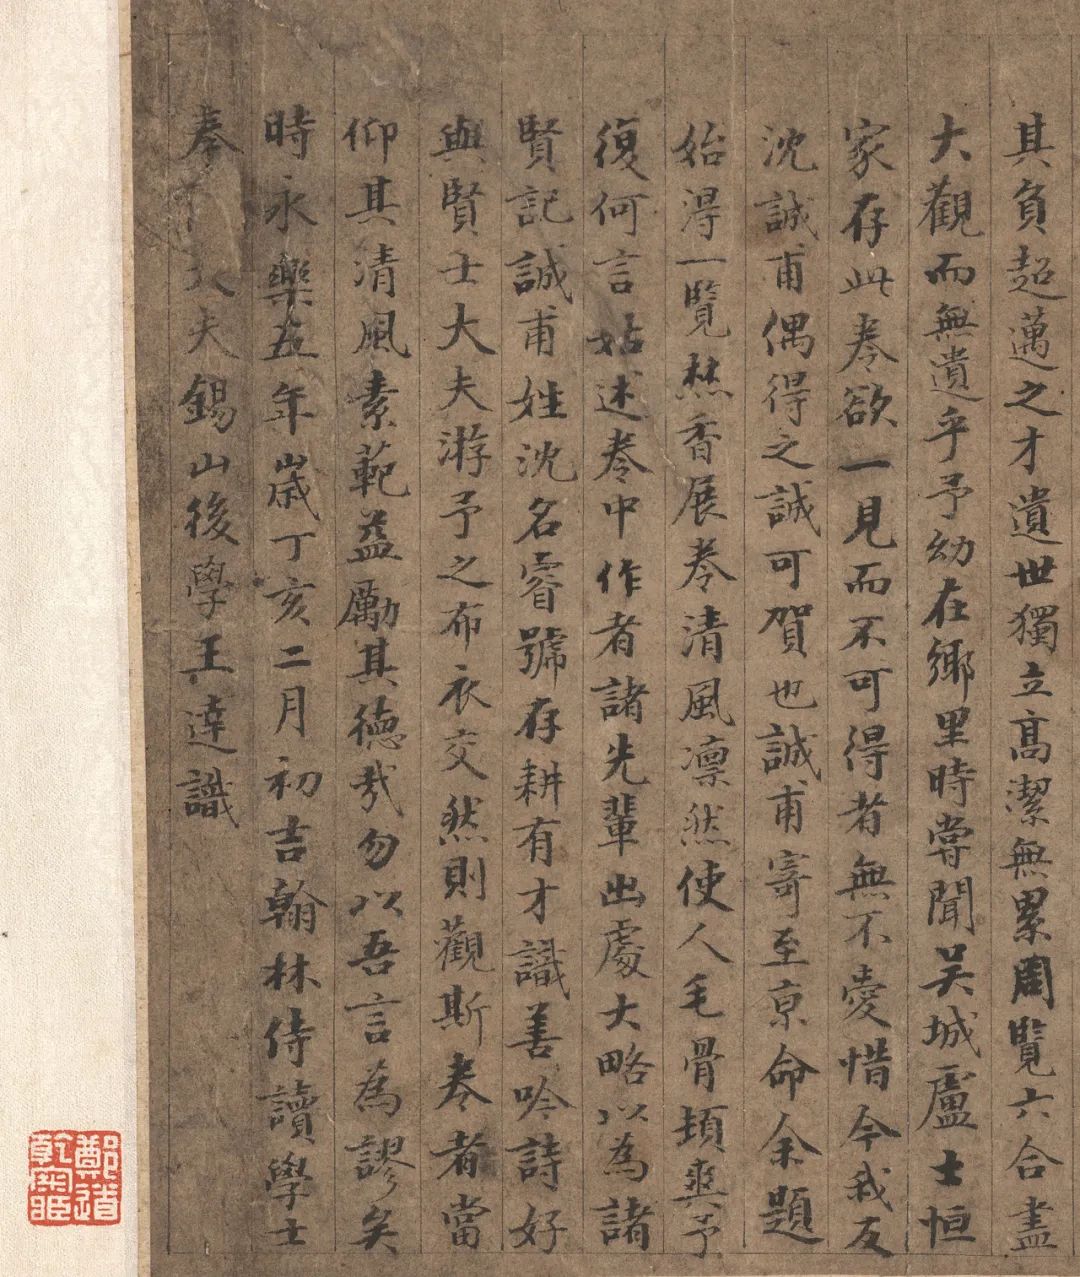 其負超邁之才遺世獨立高潔無累周覽六合盡
大觀而無遺乎予幼在鄉里時嘗聞吴城盧士恒
家存此卷欲一見而不可得者無不愛惜今我友
沈誠甫偶得之誠可賀也誠甫寄至京命余題
始得一覽焚香展卷清風凛然使人毛骨頓爽予
復何言姑述卷中作者諸先輩出處大略以為諸
賢記誠甫姓沈名睿號存耕有才識善吟詩好
與賢士大夫游予之布衣交然則觀斯卷者當
仰其清風素範益勵其德哉勿以吾言為謬矣
時永樂五年歲丁亥二月初吉翰林侍讀學士
奉大夫錫山後學王達識
鄭道